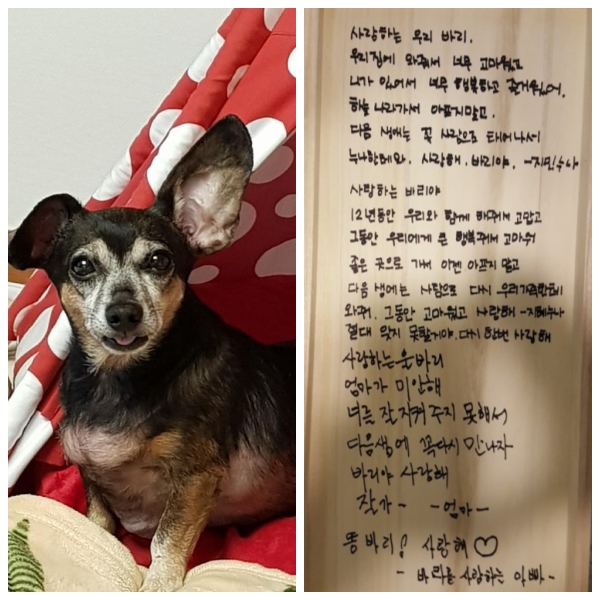 사랑하는 우리 바리.
우리집에 와줘서 너무 고마웠고
너가 있어서 너무 행복하고 즐거웠어.
하늘 나라가서 아프지말고.
다음 생에는 꼭 사람으로 태어나서
누나한테와. 사랑해. 바리야. -지민누나
사랑하는 바리야
12년동안 우리와 함께 해줘서 고맙고
그동안 우리에게 큰 행복줘서 고마워
좋은 곳으로 가서 이젠 아프지 말고
다음 생에는 사람으로 다시 우리가족한테
와줘. 그동안 고마웠고 사랑해 -지혜누나
절대 잊지 못할게야. 다시 한번 사랑해
사랑하는 울 바리
엄마가 미안해
너를 잘 지켜 주지 못해서
다음생에 꼭 다시 만나자
바리야 사랑해
잘가- -엄마-
똥바리! 사랑해 ♡
- 바리를 사랑하는 아빠 -